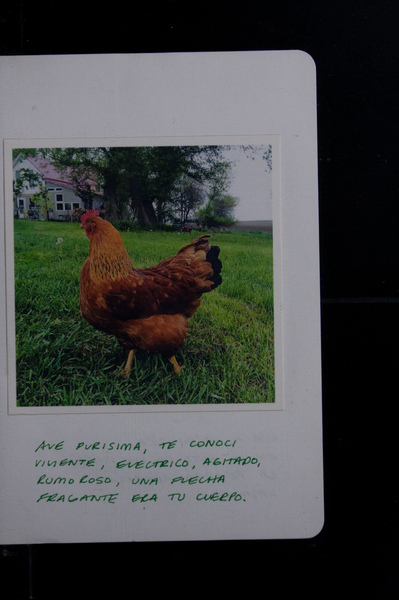 AVE PURISIMA, TE CONOCI
VIVIENTE, ELECTRICO, AGITADO,
RUMOROSO, UNA FLECHA
FRAGANTE ERA TU CUERPO.